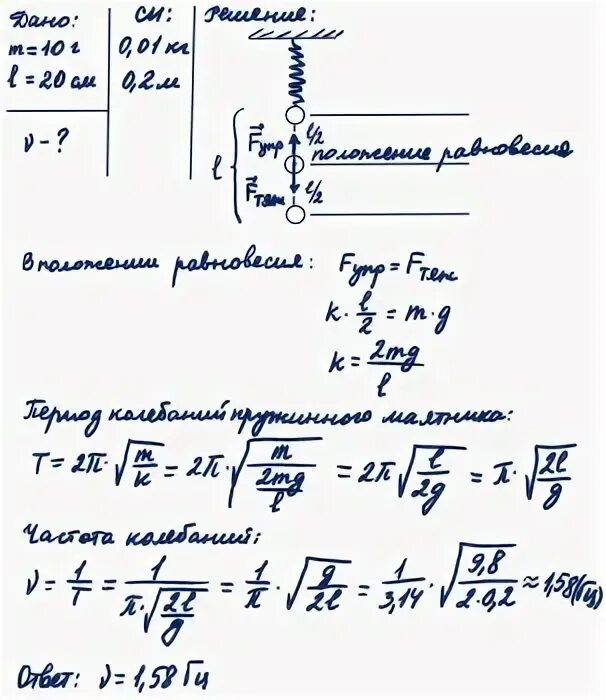 Дано: СИ: Решение:
m = 10 г 0,01 кг
l = 20 см 0,2 м
ν - ?
l/2
F⃗упр положение равновесия
l
F⃗тяж l/2
В положении равновесия: Fупр = Fтяж
k · l/2 = m · g
k = 2mg/l
Период колебаний пружинного маятника:
T = 2π · √(m/k) = 2π · √(m/(2mg/l)) = 2π √(l/2g) = π · √(2l/g)
Частота колебаний:
ν = 1/T = 1/(π · √(2l/g)) = 1/π · √(g/2l) = 1/3,14 · √(9,8/2·0,2) ≈ 1,58 (Гц)
Ответ: ν = 1,58 Гц